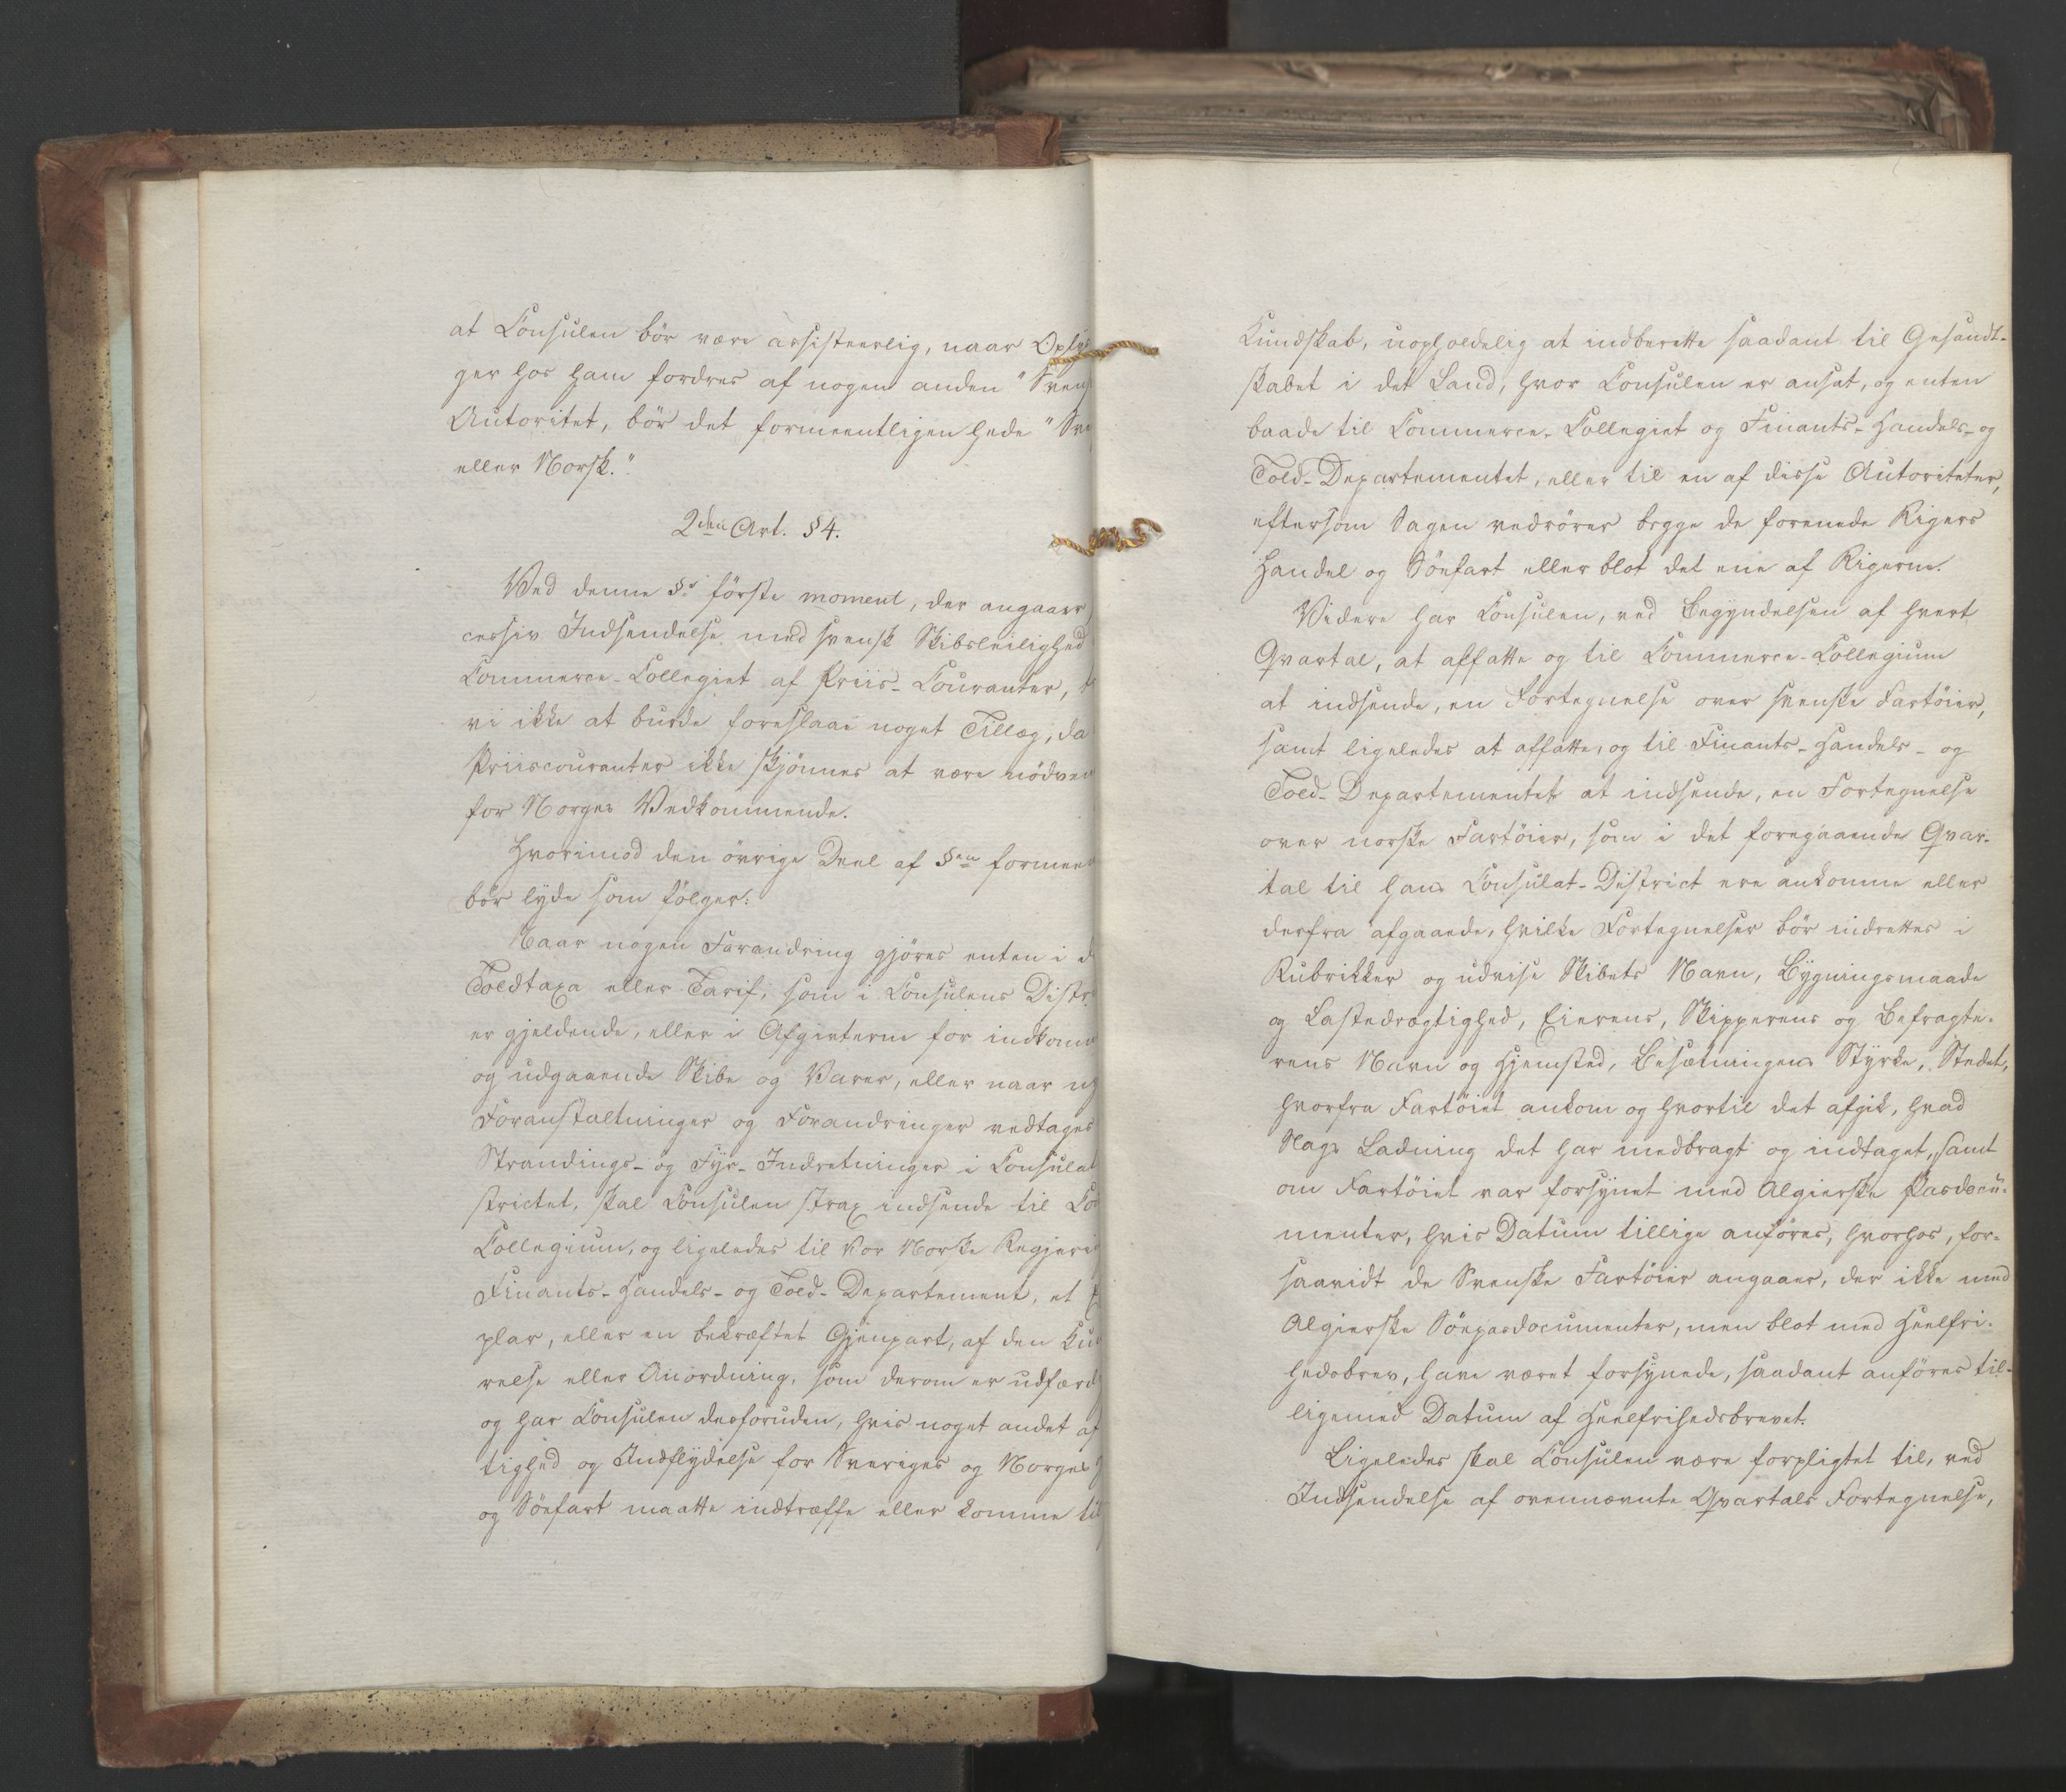 at Consulen bör være assisteerlig, naar Oplys
ger hos ham fordres af nogen anden "Svens
Autoritet, bör det formeentligen hede "Sve
eller Norsk."
2den Art. § 4.
Ved denne §s förste moment, der angaaer
cessiv Indsendelse med svensk Skibsleilighed
Commerce-Collegiet af Priis-Couranter,
vi ikke at burde foreslaae noget Tillæg, da
Priiscouranter ikke skjönnes at være nödven
for Norges Vedkommende.
Hvorimod den övrige Deel af §en formeen
bör lyde som fölger:
Naar nogen Forandring gjöres enten i d
Toldtaxa eller Tarif, som i Consulens Distr
er gjeldende, eller i Afgivterne for indkom
og udgaaende Skibe og Varer, eller naar ny
Foranstaltninger og Forandringer vedtages
Strandings- og Fyr-Indretninger i Consulat
strictet, skal Consulen strax indsende til Co
Collegium, og ligeledes til Vor Norske Regjeri
Finants- Handels- og Told-Departement, et
plar, eller en bekræftet Gjenpart, af den Kun
relse eller Anordning, som derom er udfærd
og har Consulen desforuden, hvis noget andet af
tighed og Indflydelse for Sveriges og Norges
og Söefart maatte indtræffe eller komme til
Kundskab, uopholdelig at indberette saadant til Gesandt-
skabet i det Land, hvor Consulen er ansat, og enten
baade til Commerce-Collegiet og Finants- Handels- og
Told-Departementet, eller til en af disse Autoriteter,
eftersom Sagen vedrörer begge de forenede Rigers
Handel og Söefart eller blot det ene af Rigerne.
Videre har Consulen, ved Begyndelsen af hvert
Qvartal, at affatte og til Commerce-Collegium
at indsende, en Fortegnelse over svenske Fartöier,
samt ligeledes at affatte, og til Finants- Handels- og
Told-Departementet at indsende, en Fortegnelse
over norske Fartöier, som i det foregaaende Qvar-
tal til hans Consulat-District ere ankomne eller
derfra afgaaede, hvilke Fortegnelser bör indrettes i
Rubrikker og udvise Skibets Navn, Bygningsmaade
og Lastedrægtighed, Eierens, Skipperens og Befragte-
rens Navn og Hjemsted, Besætningens Styrke, Stedet,
hvorfra Fartöiet ankom og hvortil det afgik, hvad
Slags Ladning det har medbragt og indtaget, samt
om Fartöiet var forsynet med Algierske Pasdocu-
menter, hvis Datum tillige anföres, hvorhos, for-
saavidt de Svenske Fartöier angaaer, der ikke med
Algierske Söepasdocumenter, men blot med Heelfri-
hedsbrev, have været forsynede, saadant anföres til-
ligemed Datum af Heelfrihedsbrevet.
Ligeledes skal Consulen være forpligtet til, ved
Indsendelse af ovennævnte Qvartals Fortegnelse,